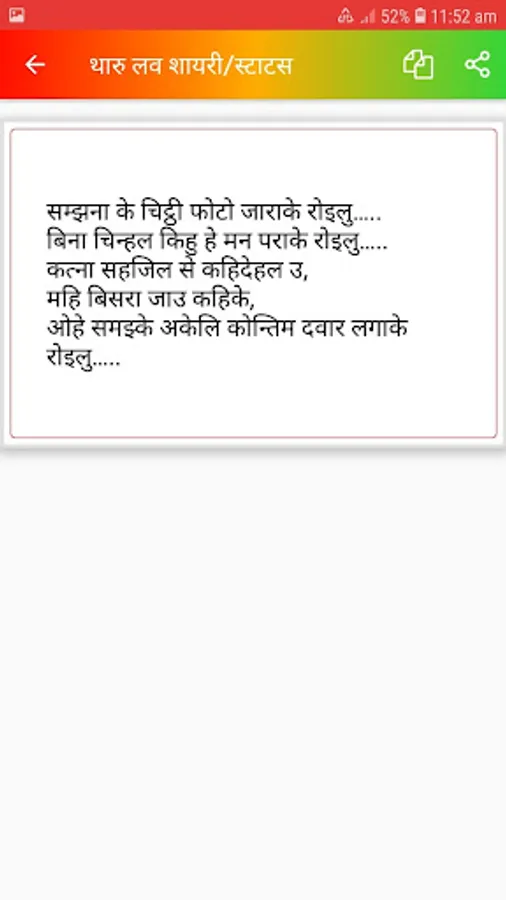 52% 11:52 am
थारु लव शायरी/स्टाटस
सम्झना के चिठ्ठी फोटो जाराके रोइलु.....
बिना चिन्हल किहु हे मन पराके रोइलु.....
कत्ना सहजिल से कहिदेहल उ,
महि बिसरा जाउ कहिके,
ओहे समझ्के अकेलि कोन्तिम दवार लगाके
रोइलु.....